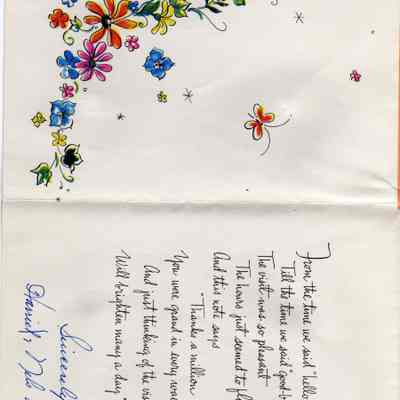 From the time we said "hello
Till the time we said "good-b
The visit was so pleasant
The hours just seemed to fl
And this note says
"Thanks a million
You were grand in every way
And just thinking of the vis
Will brighten many a day
Sincerely